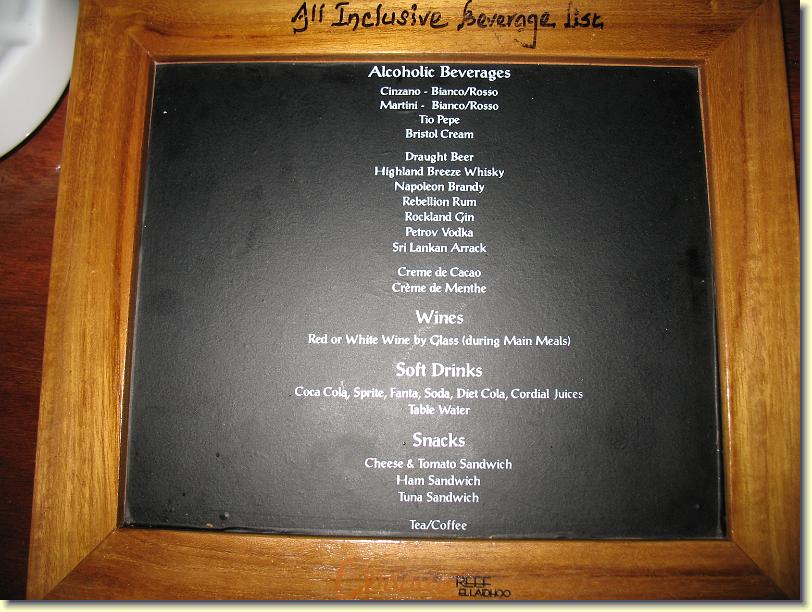 All Inclusive Beverage List
Alcoholic Beverages
Cinzano - Bianco/Rosso
Martini - Bianco/Rosso
Tio Pepe
Bristol Cream
Draught Beer
Highland Breeze Whisky
Napoleon Brandy
Rebellion Rum
Rockland Gin
Petrov Vodka
Sri Lankan Arrack
Creme de Cacao
Crème de Menthe
Wines
Red or White Wine by Glass (during Main Meals)
Soft Drinks
Coca Cola, Sprite, Fanta, Soda, Diet Cola, Cordial Juices
Table Water
Snacks
Cheese & Tomato Sandwich
Ham Sandwich
Tuna Sandwich
Tea/Coffee
REEF
ELLAIDHOO